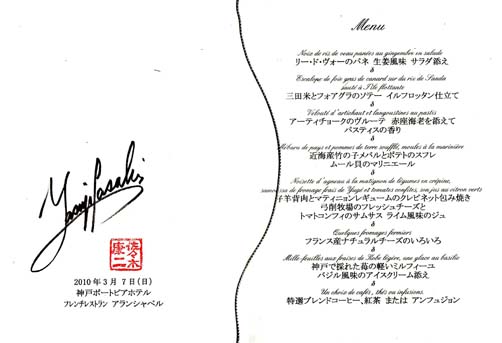 2010年3月7日(日)
神戸ポートピアホテル
フレンチレストラン アランシャペル
Menu
Noix de ris de veau panées au gingembre en salade
リー・ド・ヴォーのパネ 生姜風味 サラダ添え
Escalope de foie gras de canard sur du ris de Sanda
sauté à l'île flottante
三田米とフォアグラのソテー イルフロッタン仕立て
Velouté d'artichaut et langoustines au pastis
アーティチョークのヴルーテ 赤座海老を添えて
パスティスの香り
Mebaru de pays et pommes de terre soufflé, moules à la marinière
近海産竹の子メバルとポテトのスフレ
ムール貝のマリニエール
Noisette d'agneau à la matignon de légumes en crépine,
samoussa de fromage frais de Yugé et tomates confites, son jus au citron verts
子羊背肉とマティニョンレギュームのクレピネット包み焼き
弓削牧場のフレッシュチーズと
トマトコンフィのサムサス ライム風味のジュ
Quelques fromages fermiers
フランス産ナチュラルチーズのいろいろ
Mille-feuilles aux fraises de Kobe légère, une glace au basilic
神戸で採れた苺の軽いミルフィーユ
バジル風味のアイスクリーム添え
Un choix de cafés, thés ou infusions.
特選ブレンドコーヒー、紅茶 または アンフュジョン